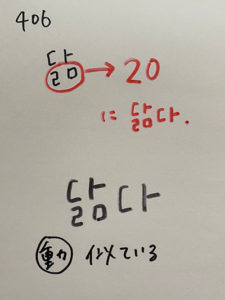 406
닮→20
に 닮다.
닮다
動 似ている